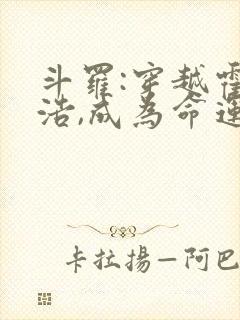 斗羅:穿越霍
浩,成為命運
卡拉揚—阿巴